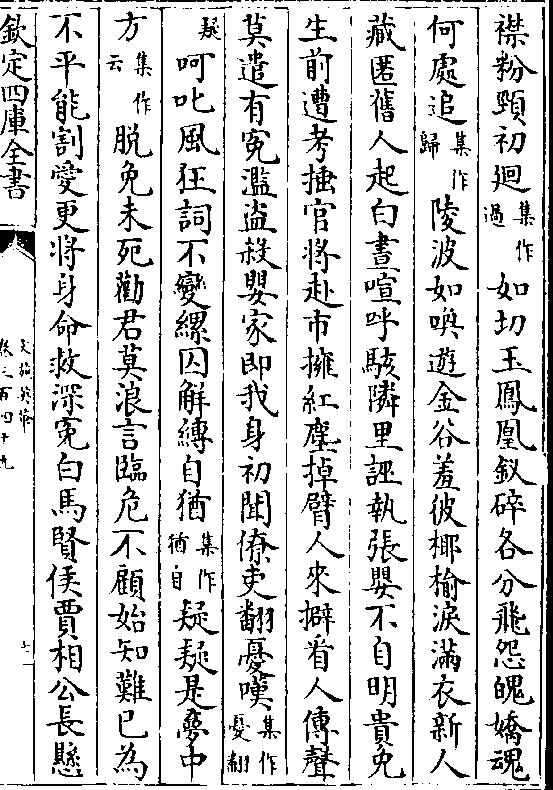 襟粉頸初𢌞集作過如切玉鳳凰釵碎各分飛怨魄嬌魂
何處追集作歸陵波如喚遊金谷羞彼椰榆淚滿衣新人
藏匿舊人起白晝喧呼駭隣里誣執張嬰不自明貴免
生前遭考捶官將赴市擁紅塵掉臂人來擗看人傳聲
莫遣有寃濫盗殺嬰家即我身初聞僚吏翻憂嘆集作憂翻
疑呵叱風狂詞不變縲囚解縛自猶集作猶自疑疑是夢中
方集作云脱免未死勸君莫浪言臨危不顧始知難已為
不平能割愛更將身命救深寃白馬賢侯賈相公長懸
欽定四庫全書
文苑英華
卷三百四十九